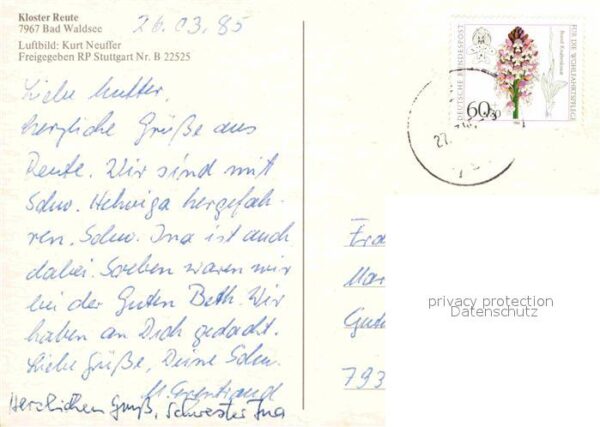 Kloster Reute
7967 Bad Waldsee
Luftbild: Kurt Neuffer
Freigegeben RP Stuttgart Nr. B 22525
26.03.85
Liebe Mutter,
herzliche Grüße aus
Reute. Wir sind mit
Schw. Helwiga hergefah-
ren. Schw. Ina ist auch
dabei. Soeben waren wir
bei der Guten Beth. Wir
haben an Dich gedacht.
Liebe Grüße, Deine Schw.
M.
Herzlichen Gruß, Schwester Ina
DEUTSCHE BUNDESPOST
FÜR DIE WOHLFAHRTSPFLEGE
60+30
27.
Fra
Mar
793
privacy protection
Datenschutz